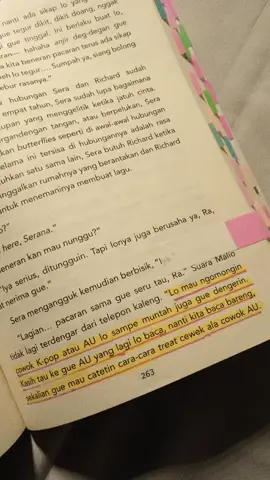 nanti ada sikap lo yang
gue tegur dikit, dikit doang, nggak
gue tinggal. Ini berlaku buat lo,
hahaha anjir deg-degan gue
kita beneran pacaran terus ada sikap
lo tegur... Sumpah ya, siang bolong
rasanya."
hubungan Sera dan Richard sudah
empat tahun, Sera sudah lupa bagaimana
yang menggelitik ketika jatuh cinta.
tangan, atau berpelukan, Sera
butterflies seperti di awal-awal hubungan
selama ini tersisa di hubungannya adalah rasa
satu sama lain, Sera butuh Richard ketika
rumahnya yang berantakan dan Richard
untuk menemaninya membuat lagu.
here, Serana."
kan mau nunggu?"
"Iya serius, ditungguin. Tapi lonya juga berusaha ya, Ra,
nerima gue."
Sera mengangguk kemudian berbisik, "Iya
"Lagian... pacaran sama gue seru tau, Ra." Suara Malio
tidak lagi terdengar dari telepon kaleng. "Lo mau ngomongin
cowok K-pop atau AU lo sampe muntah juga gue dengerin.
Kasih tau ke gue AU yang lagi lo baca, nanti kita baca bareng,
sekalian gue mau catetin cara-cara treat cewek ala cowok AU.
263